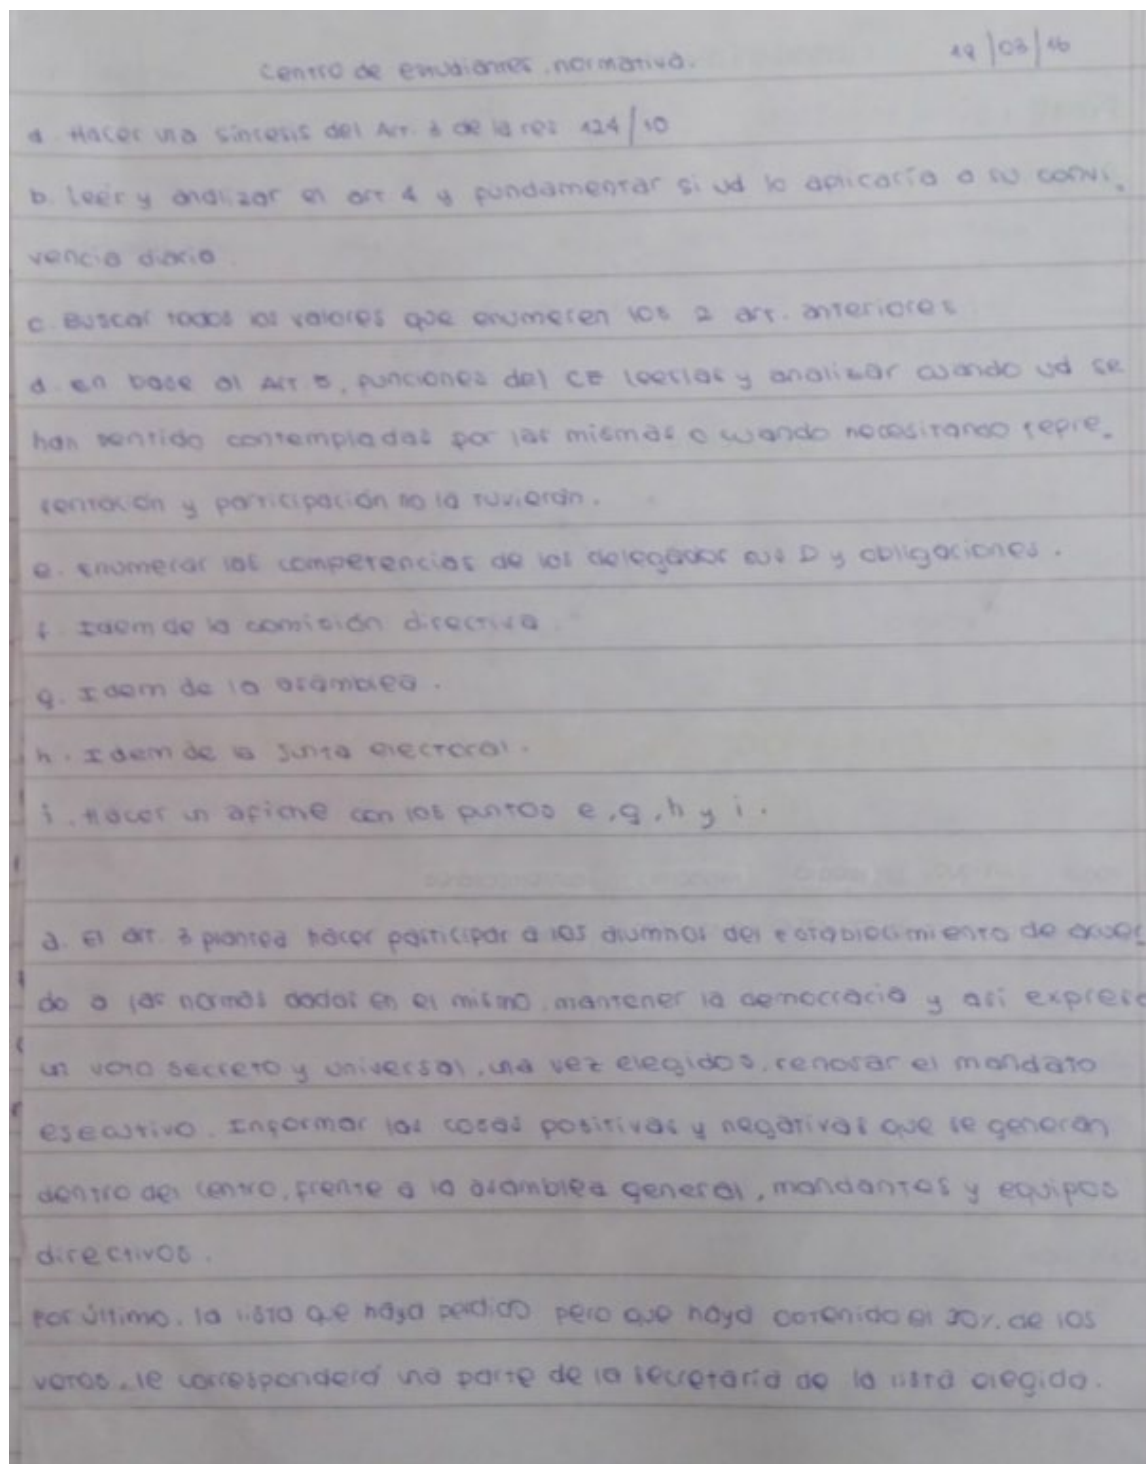 Centro de estudiantes, normativa.
18/03/16
a. Hacer una síntesis del Art. 3 de la res 124/10
b. Leer y analizar el art 4 y fundamentar si ud lo aplicaría a su convi-
vencia diaria.
c. Buscar todos los valores que enumeren los 2 art. anteriores
d. en base al Art 5, funciones del CE leerlas y analizar cuando ud se
han sentido contempladas por las mismas o cuando necesitando repre-
sentación y participación no la tuvieran.
e. enumerar las competencias de los delegados sus D y obligaciones.
f. Idem de la comisión directiva.
g. Idem de la asamblea.
h. Idem de la junta electoral.
i. Hacer un afiche con los puntos e, g, h y i.
a. El art. 3 plantea hacer participar a los alumnos del establecimiento de acuer
do a las normas dadas en el mismo, mantener la democracia y asi expresa
un voto secreto y universal, una vez elegidos, renovar el mandato
esecutivo. Informar las cosas positivas y negativas que se generan
dentro del centro, frente a la asamblea general, mandantes y equipos
directivos.
Por último, la lista que haya perdido pero que haya obtenido el 30% de los
votos, le corresponderá una parte de la secretaría de la lista elegida.